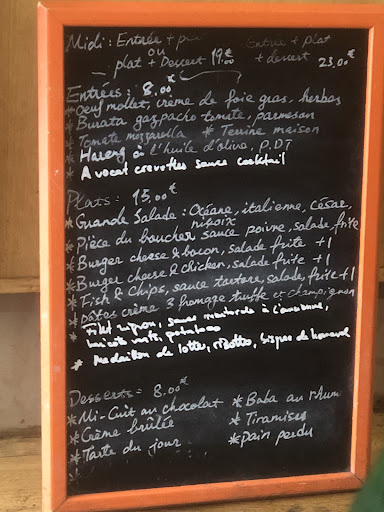 Midi : Entrée + plat
ou
plat + Dessert 19.00€
Entrée + plat
+ dessert 23.00€
Entrées : 8,00€
* Oeuf mollet, crème de foie gras, herbes
* Burata gazpacho tomate, parmesan
* Tomate mozzarella * Terrine maison
* Hareng à l'huile d'olive, P.DT
* Avocat crevettes sauce cocktail
Plats : 15,00€
* Grande Salade : Océane, italienne, césar,
niçoix
* Pièce du boucher sauce poivre, salade, frite
* Burger cheese & bacon, salade frite +1
* Burger cheese & chicken, salade frite +1
* Fish & Chips, sauce tartare salade, frite +1
* Pâtes crème 3 fromage truffe et champignon
* Filet mignon, sauce moutarde à l'ancienne,
haricots verts, potatoes
* Medaillon de lotte, risotto, bisque de homard
Desserts : 8.00€
* Mi-Cuit au chocolat
* Crème brûlée
* Tarte du jour
* Baba au rhum
* Tiramisu
* Pain perdu